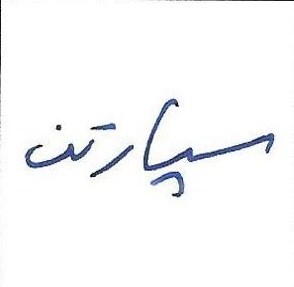 سپارتن